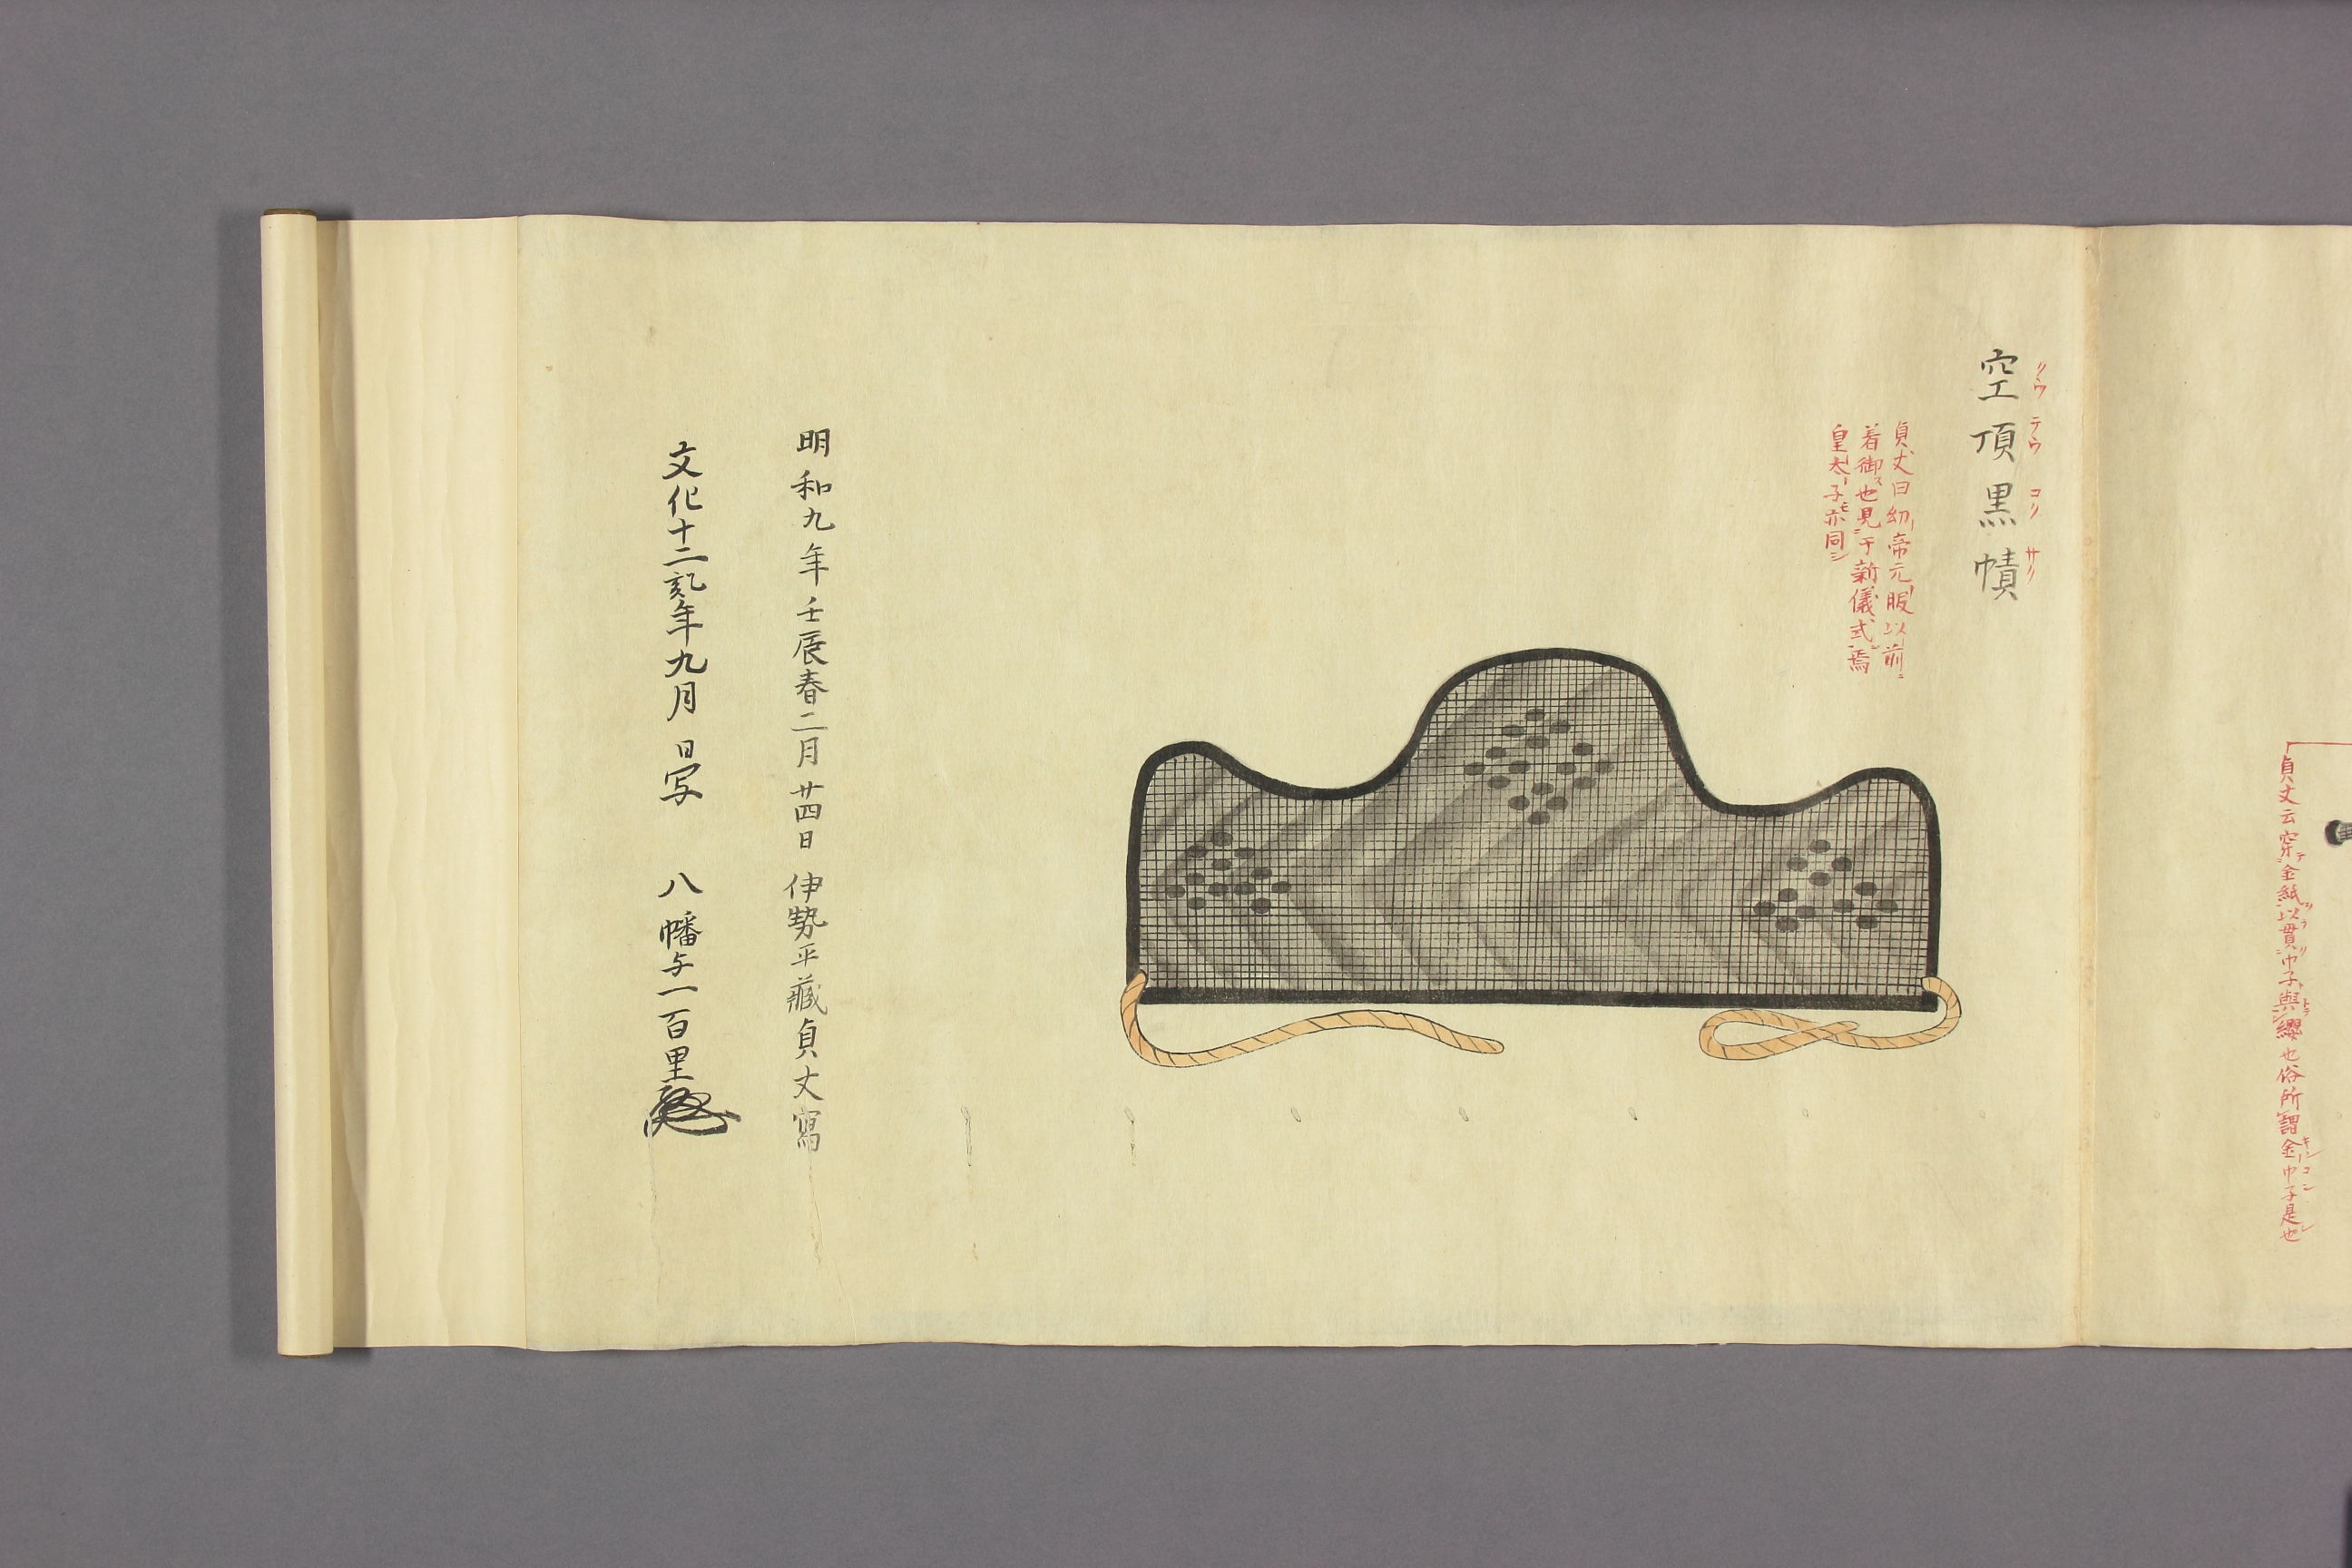 貞丈云穿金紙以貫巾子與纓也俗所謂金巾子是也
空頂黒幘
貞丈曰幼帝元服以前ニ
着御ス也見于新儀式焉
皇太子モ亦同シ
明和九年壬辰春二月廿四日 伊勢平藏貞丈寫
文化十二乙亥年九月 日写 八幡与一百里